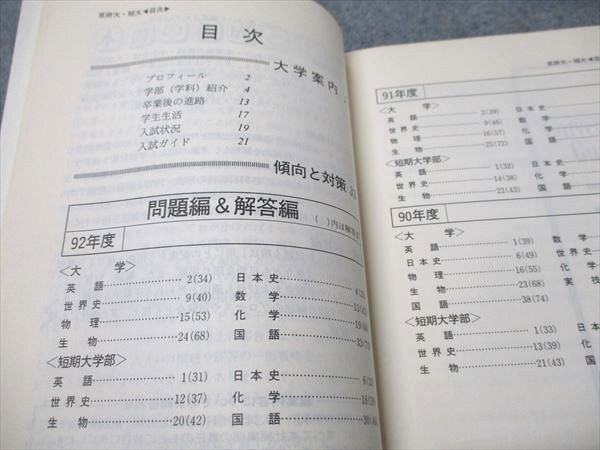 目次
大学案内
プロフィール 2
学部(学科)紹介 4
卒業後の進路 13
学生生活 17
入試状況 19
入試ガイド 21
傾向と対策
問題編&解答編
92年度
<大学>
英語……2(34) 日本史
世界史……9(40) 数学
物理……15(53) 化学
生物……24(68) 国語
<短期大学部>
英語……1(31) 日本史
世界史……12(37) 化学
生物……20(42) 国語
91年度
<大学>
英語……2(39) 日本史
世界史……9(46) 数学
物理……16(57) 化学
生物……25(72) 国語
<短期大学部>
英語……1(32) 日本
世界史……14(38) 化学
生物……22(43) 国語
90年度
<大学>
英語……1(39) 数学
日本史……6(49) 世界
物理……16(55) 化学
生物……23(68) 実技
国語……38(74)
<短期大学部>
英語……1(33) 日本
世界史……13(39) 化学
生物……21(43) 国